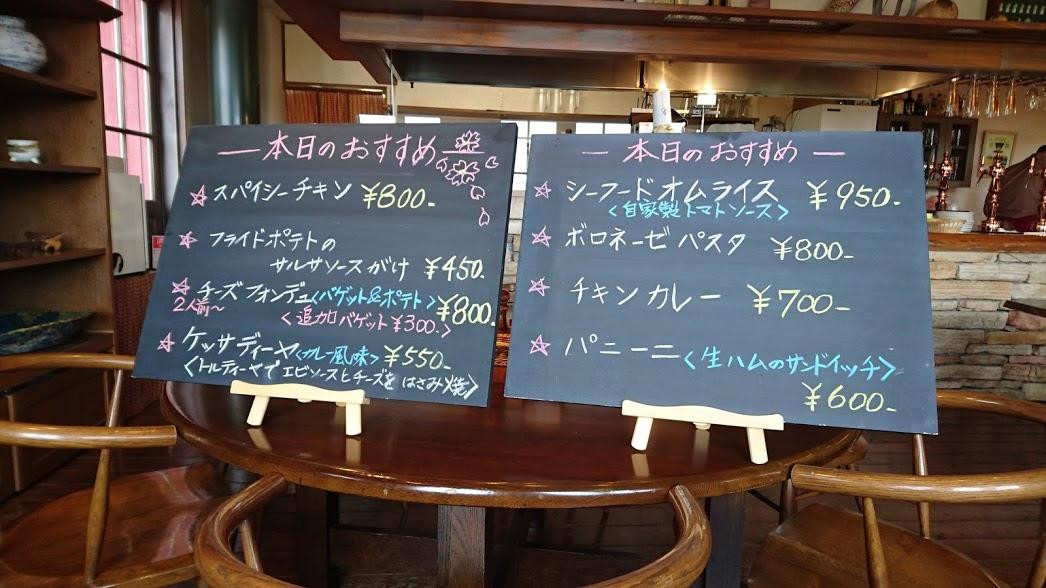 本日のおすすめ
☆ スパイシーチキン ¥800-
☆ フライドポテトの
サルサソースがけ ¥450-
☆ チーズフォンデュ<バゲット&ポテト> ¥800-
2人前~ <追加バゲット¥300.>
☆ ケッサディーヤ<カレー風味> ¥550-
<トルティーヤでエビソースとチーズをはさみ焼>
本日のおすすめ
☆ シーフードオムライス ¥950-
<自家製トマトソース>
☆ ボロネーゼパスタ ¥800-
☆ チキンカレー ¥700-
☆ パニーニ<生ハムのサンドイッチ>
¥600-